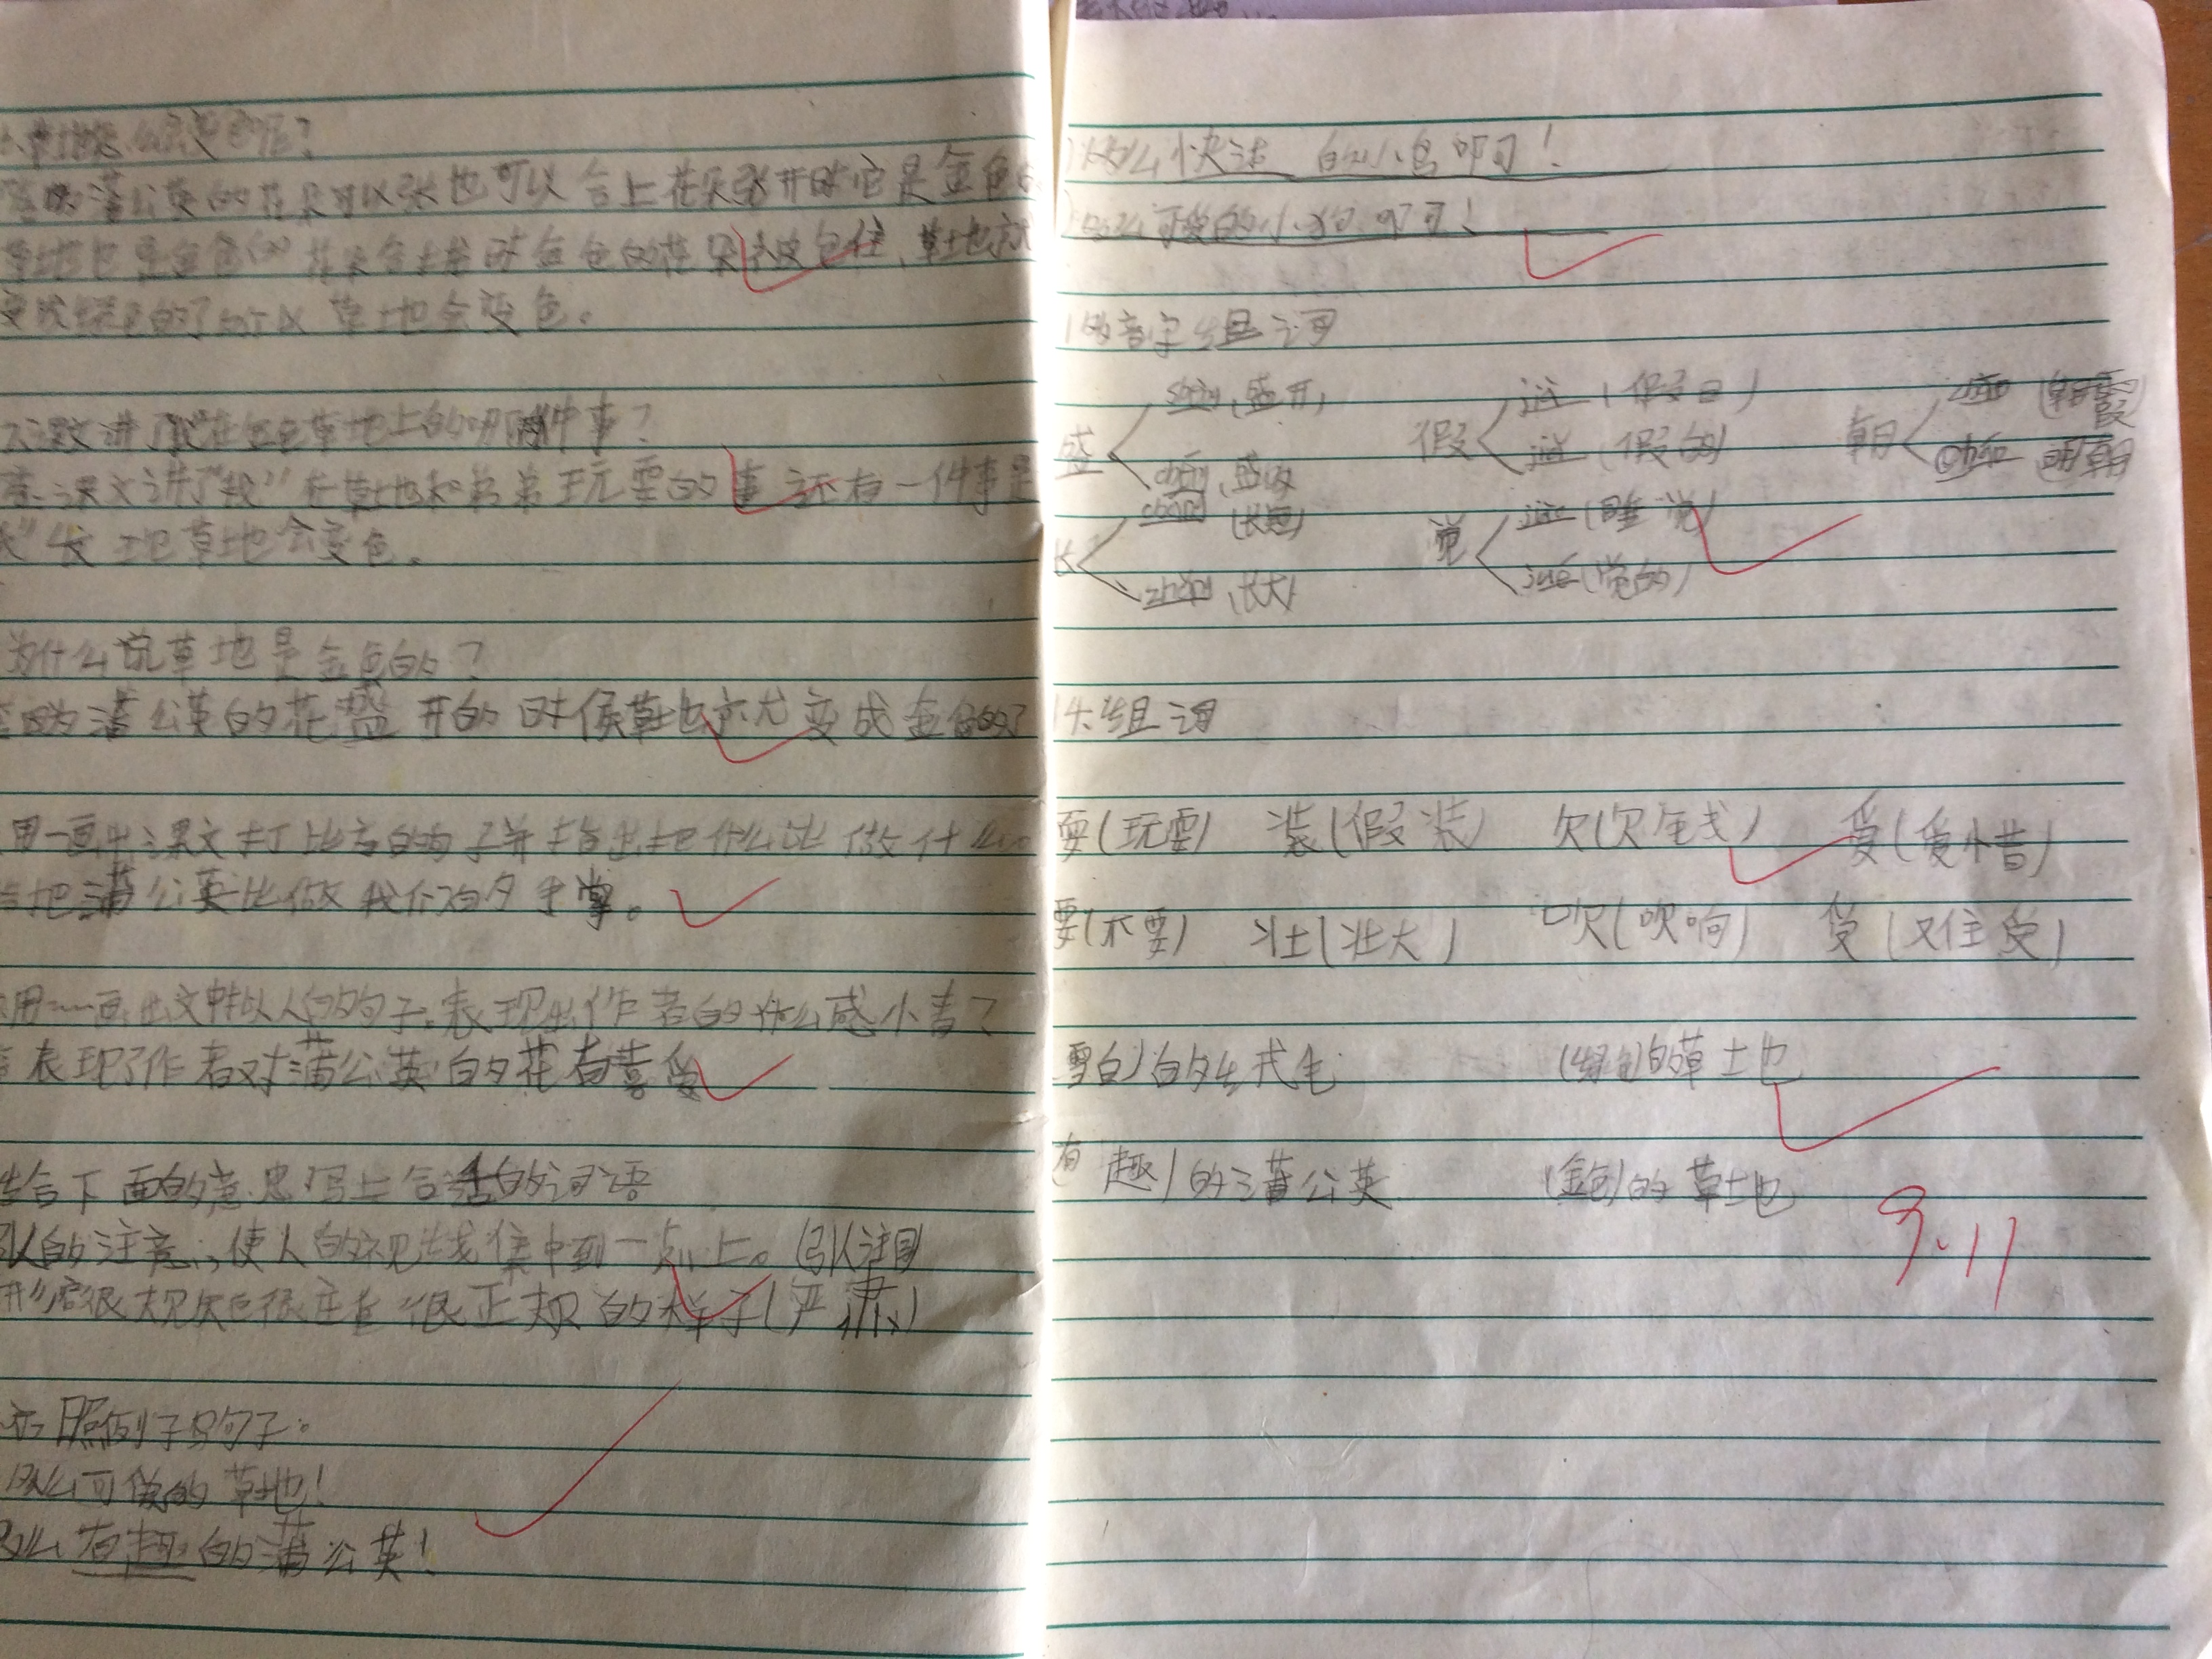 草地怎么会变色呢?
因为蒲公英的花朵可以张也可以合上花朵张开时它是金色
草地也是金色的花朵合上时金色的花朵被包住、草地就
变成绿色的了所以草地会变色。
课文讲了"我"在金色草地上的哪两件事?
课文讲了"我"在草地和弟弟玩耍的事还有一件事是
草地会变色。
为什么说草地是金色的?
因为蒲公英的花盛开的时候草地就变成金色的了
用一画出课文打比方的句子并指出把什么比做什么
把蒲公英比做我们的手掌。
用﹏画出文中拟人的句子。表现出作者的什么感情?
表现了作者对蒲公英的花有喜爱
结合下面的意思写上合适的词语
的注意,使人的视线集中到一点上。(引人注目
形容很规矩很庄重很正规的样子(严肃)
照例子写句子。
多么可爱的草地!
多么有趣的蒲公英!
多么快活的小鸟啊!
多么可爱的小狗啊!
多音字组词
盛 shèng(盛开)
chéng(盛饭
假 jià(假日)
jiǎ(假的)
朝 zhāo(朝霞
cháo 明朝
长 cháng(长短)
zhǎng(长大)
觉 jiào(睡觉)
jué(觉的)
组词
耍(玩耍) 装(假装) 欠(欠钱) 爱(爱惜)
要(不要) 壮(壮大) 吹(吹响) 受(受)
雪白)的绒毛 (绿色)的草地
有趣)的蒲公英 (金色)的草地
9.11